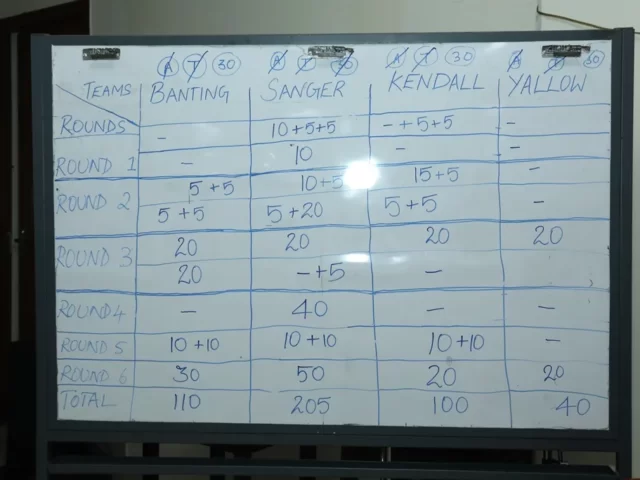 A T 30 A T 30 A T 30 A T 30
TEAMS BANTING SANGER KENDALL YALLOW
ROUNDS - 10+5+5 - +5+5 -
ROUND 1 - 10 - -
5+5 10+5 15+5 -
ROUND 2 5+5 5+20 5+5 -
20 20 20 20
ROUND 3 20 -+5 -
ROUND 4 - 40 - -
ROUND 5 10+10 10+10 10+10 -
ROUND 6 30 50 20 20
TOTAL 110 205 100 40